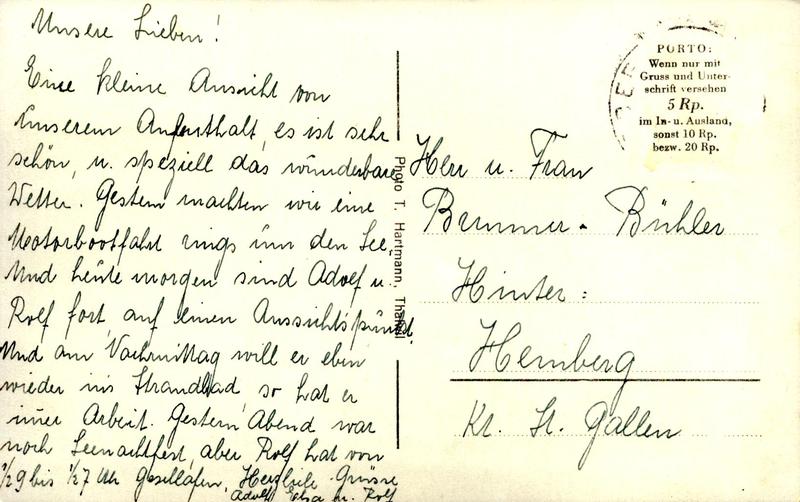 Unsere Lieben!
Eine kleine Ansicht von
unserem Aufenthalt, es ist sehr
schön, u. speziell das wunderbare
Wetter. Gestern machten wir eine
Motorbootfahrt rings um den See.
Und heute morgen sind Adolf u.
Rolf fort, auf einen Aussichtspunkt.
Und am Nachmittag will er eben
wieder ins Strandbad, so hat er
imer Arbeit. Gestern Abend war
noch Seenachtfest, aber Rolf hat von
1/29 bis 1/27 Uhr geschlafen. Herzliche Grüsse
Adolf Elsa u. Rolf
Photo T. Hartmann, Thalwil
PORTO:
Wenn nur mit
Gruss und Unter-
schrift versehen
5 Rp.
im In- u. Ausland,
sonst 10 Rp.
bezw. 20 Rp.
Herr u. Frau
Brunner-Bühler
Hinter:
Hemberg
Kt. St. Gallen